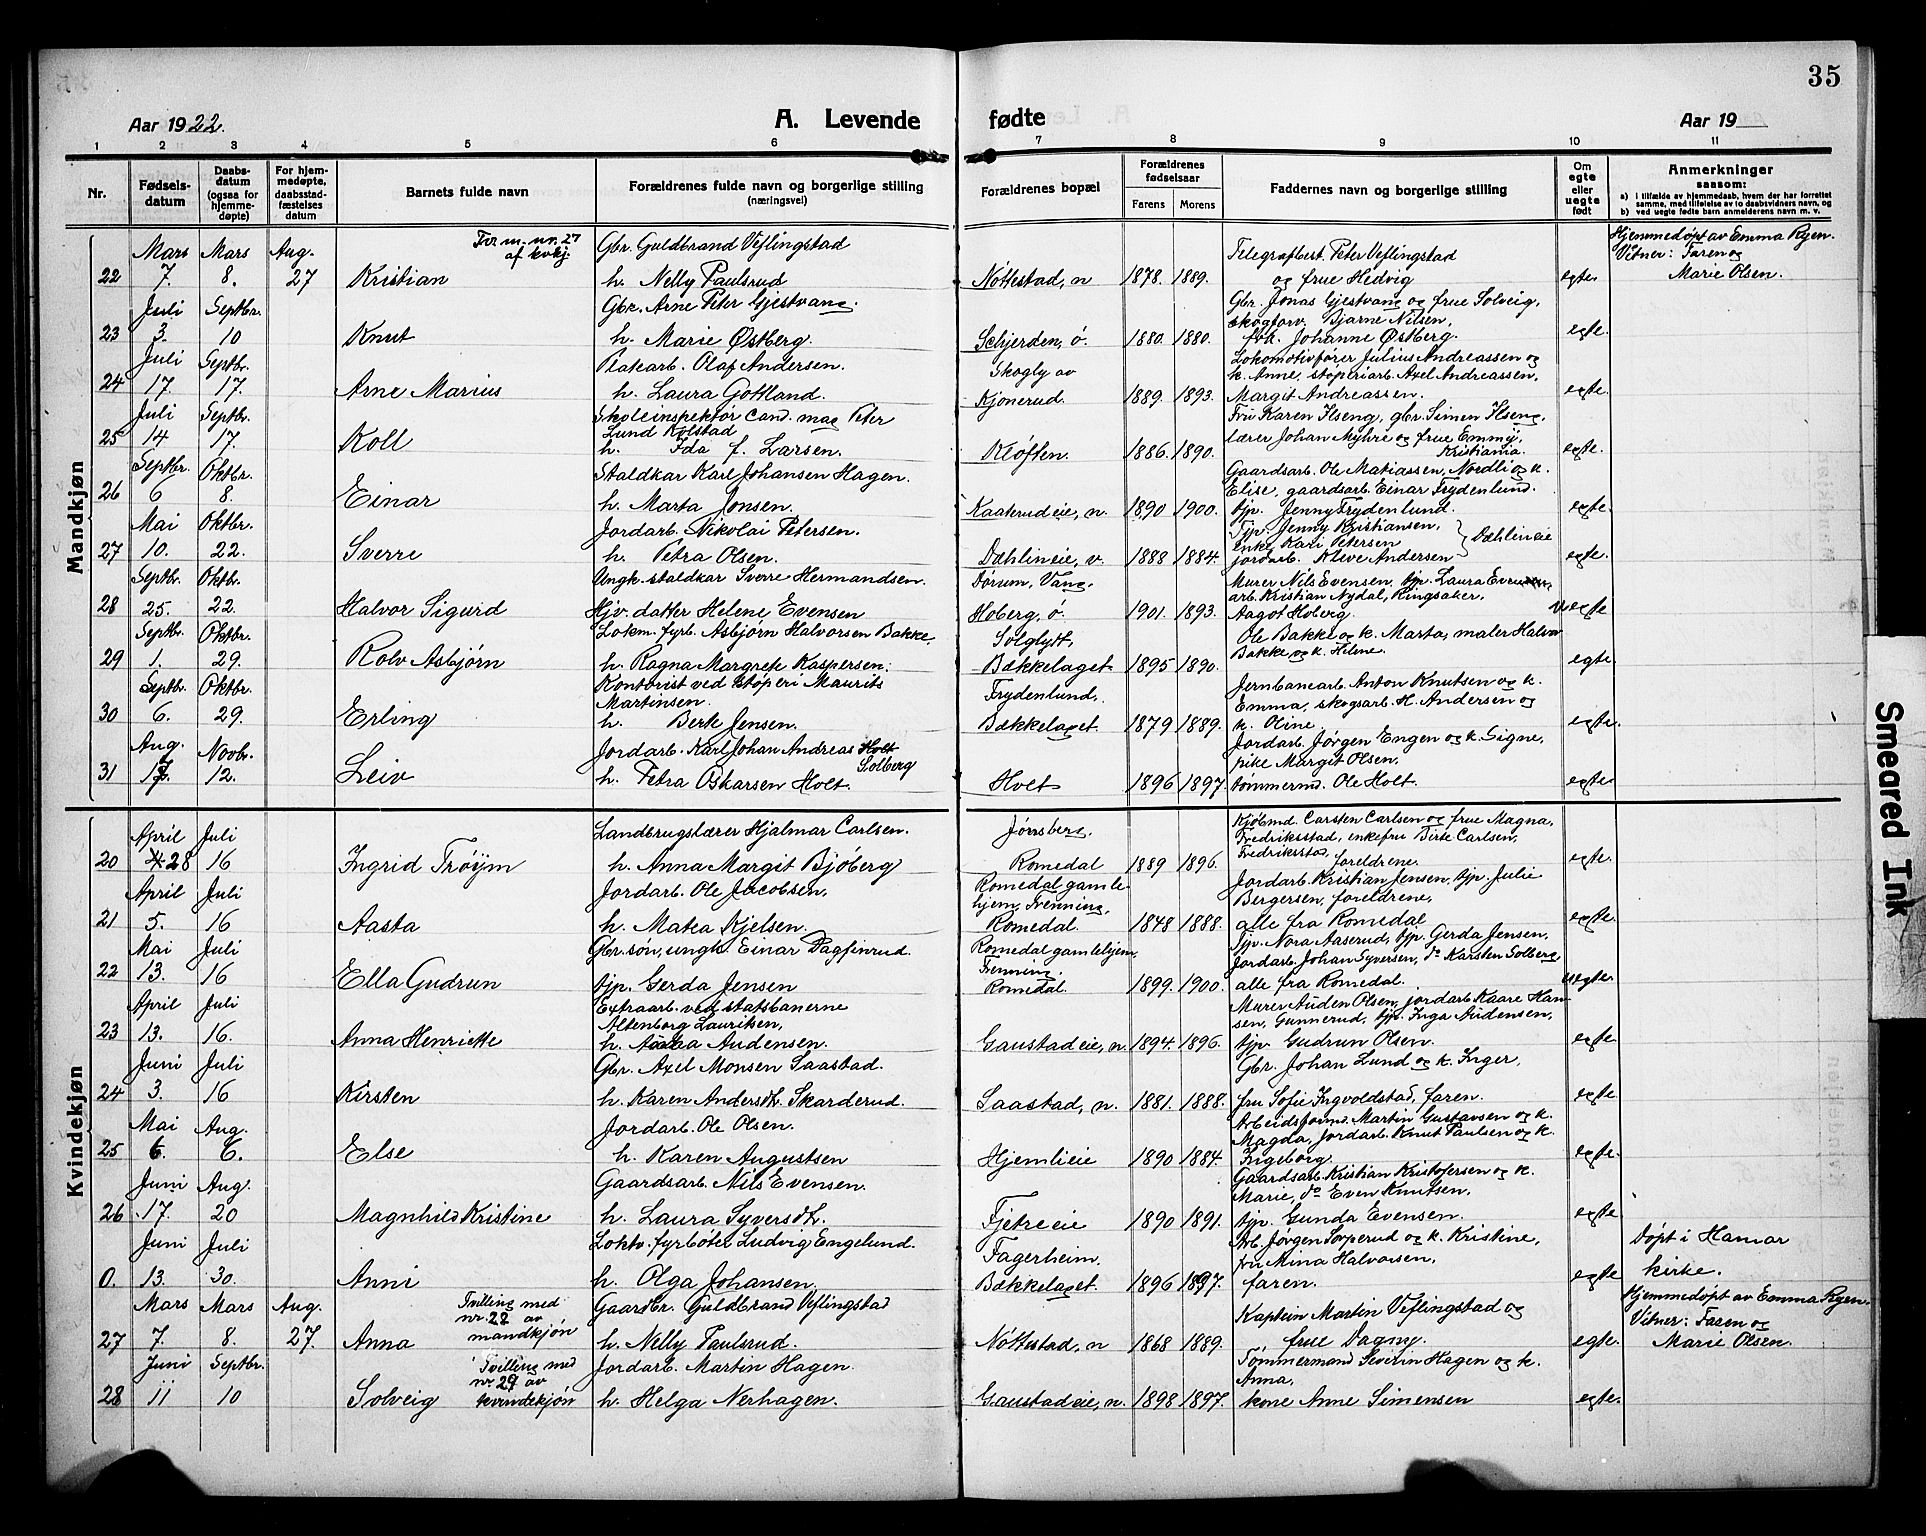 35
Aar 1922. A. Levende fødte Aar 19
1 2 3 4 5 6 7 8 9 10 11
Nr. Fødsels-datum Daabs-datum (ogsaa for hjemme-døpte) For hjem-medøpte, daabsstad-fæstelses datum Barnets fulde navn Forældrenes fulde navn og borgerlige stilling (næringsvei) Forældrenes bopæl Forældrenes fødselsaar Farens Morens Faddernes navn og borgerlige stilling Om egte eller uegte født Anmerkninger saasom: a) i tilfælde av hjemmedaab, hvem der har forrettet samme, med tilføielse av to daabsvidners navn, og b) ved uegte fødte barn anmelderens navn m. v.
Mandkjøn
Mars Mars Aug. Tv. m. nr. 27 af kvkj. Gbr. Guldbrand Veflingstad Telegrafbest. Peter Veflingstad Hjemmedøpt av Emma Ryen. Vitner: Faren og
22 7. 8. 27 Kristian h. Nelly Paulsrud Nøttestad, n 1878. 1889. og frue Hedvig egte. Marie Olsen.
Juli Septbr. Gbr. Arne Peter Gjestvang. Gbr. Jonas Gjestvang og frue Solveig, skogforv. Bjarne Nilsen,
23 3. 10 Knut h. Marie Østberg. Schjerden, ø. 1880. 1880. frk. Johanne Østberg. egte.
Juli Septbr. Platearb. Olaf Andersen. Skogly av Lokomotivfører Julius Andreassen og k. Anne, støperiarb. Axel Andreassen,
24 17. 17. Arne Marius h. Laura Gottland. Kjonerud. 1889. 1893. Margit Andreassen. egte.
Juli Septbr. Skoleinspektør Cand. mag Peter Lund Kolstad Fru Karen Ilseng, gbr. Simen Ilseng,
25 14 17. Koll h. Ida f. Larsen. Kløften. 1886. 1890. lærer Johan Myhre og frue Emmy, Kristiania. egte.
Septbr. Oktbr. Staldkar Karl Johansen Hagen. Gaardsarb. Ole Matiassen, Nordli og k. Elise, gaardsarb. Einar Frydenlund.
26 6 8. Einar h. Marta Jonsen. Kaaterudeie, n. 1890 1900. tjp. Jenny Frydenlund. egte.
Mai Oktbr. Jordarb. Nikolai Petersen. Tjp. Jenny Kristiansen, enke Kari Petersen Dæhlineie
27 10. 22. Sverre h. Petra Olsen. Dæhlineie, v. 1888 1884. jordarb. Kleve Andersen egte.
Septbr. Oktbr. Ungk. staldkar Sverre Hermandsen. Dørum, Vang. Murer Nils Evensen, tjp. Laura Evensen, arb. Kristian Nydal, Ringsaker,
28 25. 22. Halvor Sigurd Hjv. datter Helene Evensen Hoberg, ø. 1901. 1893. Aagot Hoberg. uegte
Septbr. Oktbr. Lokm. fyrb. Asbjørn Halvorsen Bakke. Solglytt, Ole Bakke og k. Marta, maler Halvor Bakke og k. Helene.
29 1. 29. Rolv Asbjørn h. Ragna Margrete Kaspersen. Bækkelaget. 1895 1890. egte.
Septbr. Oktbr. Kontorist ved støperi Maurits Martinsen. Frydenlund, Jernbanearb. Anton Knutsen og k. Emma, skogsarb. H. Andersen og
30 6. 29. Erling h. Berte Jensen. Bækkelaget. 1879 1889. k. Oline. egte.
Aug. Novbr. Jordarb. Karl Johan Andreas Holt Solberg Jordarb. Jørgen Engen og k. Signe, pike Margit Olsen,
31 17. 12. Leiv h. Petra Oskarsen Holt. Holt 1896 1897. tømmermd. Ole Holt. egte.
Kvindekjøn
April Juli Landbrugslærer Hjalmar Carlsen. Jønsberg, Kjøbmd. Carsten Carlsen og frue Magna, Fredriksstad, enkefru Birte Carlsen,
20 28 16 Ingrid Trøijm h. Anna Margit Bjöberg Romedal 1889 1896. Fredriksstad, foreldrene. egte.
April Juli Jordarb. Ole Jacobsen. Romedal gamle hjem, Frenning, Jordarb. Kristian Jensen, tjp. Julie Bergersen, foreldrene,
21 5. 16 Aasta h. Matea Kjelsen. Romedal. 1848 1888. alle fra Romedal egte.
Mai Juli Gbr. søn, ungk. Einar Dagfinrud. Romedal gamlehjem, Frenning. Tjp. Nora Aaserud, tjp. Gerda Jensen, Jordarb. Johan Syversen, do Karsten Solberg
22 13. 16 Ella Gudrun tjp. Gerda Jensen Romedal. 1899. 1900. alle fra Romedal. uegte.
April Juli Extraarb. ved statsbanerne Altenborg Lauritsen, Murer Auden Olsen, jordarb. Kaare Hansen, Gunnerud, tjp. Inga Audensen,
23 13. 16. Anna Henriette h. Audensen. Gaustadeie, n. 1894. 1896. tjp. Gudrun Olsen. egte.
Juni Juli Gbr. Axel Monsen Saastad. Gbr. Johan Lund og k. Inger,
24 3. 16 Kirsten h. Karen Andersdt. Skarderud. Saastad, n. 1881. 1888. fru Sofie Ingvoldstad, faren. egte.
Mai Aug. Jordarb. Ole Olsen. Arbeidsformd. Martin Gustavsen og k. Magda, jordarb. Knut Paulsen og k.
25 6. 6. Else h. Karen Augustsen Hjemlieie 1890 1884. Ingeborg. egte.
Juni Aug. Gaardsarb. Nils Evensen. Gaardsarb. Kristian Kristofersen og k. Marie, do Even Knutsen.
26 17. 20 Magnhild Kristine h. Laura Syversdt. Fjetreeie 1890 1891. tjp. Gunda Evensen. egte.
Juni Juli Loktv. fyrbøter Ludvig Engelund. Fagerheim, Arb. Jørgen Torperud og k. Kristine, fru Mina Halvorsen, Døpt i Hamar
0. 13. 30. Anni h. Olga Johansen. Bækkelaget. 1896 1897. faren. egte kirke.
Mars Mars Aug. Tvilling med nr. 22 av mandkjøn Gaardbr. Guldbrand Veflingstad Kaptein Martin Veflingstad og Hjemmedøpt av Emma Ryen. Vitner: Faren og
27 7. 8. 27. Anna h. Nelly Paulsrud. Nøttestad, n 1868 1889. frue Dagny. egte. Marie Olsen.
Juni Septbr. Tvilling med nr. 29 av kvindekjøn Jordarb. Martin Hagen. Tømmermand Severin Hagen og k. Anna,
28 11 10 Solveig h. Helga Nerhagen. Gaustadeie, n. 1898 1897. kone Anne Simensen egte.
Smeared Ink